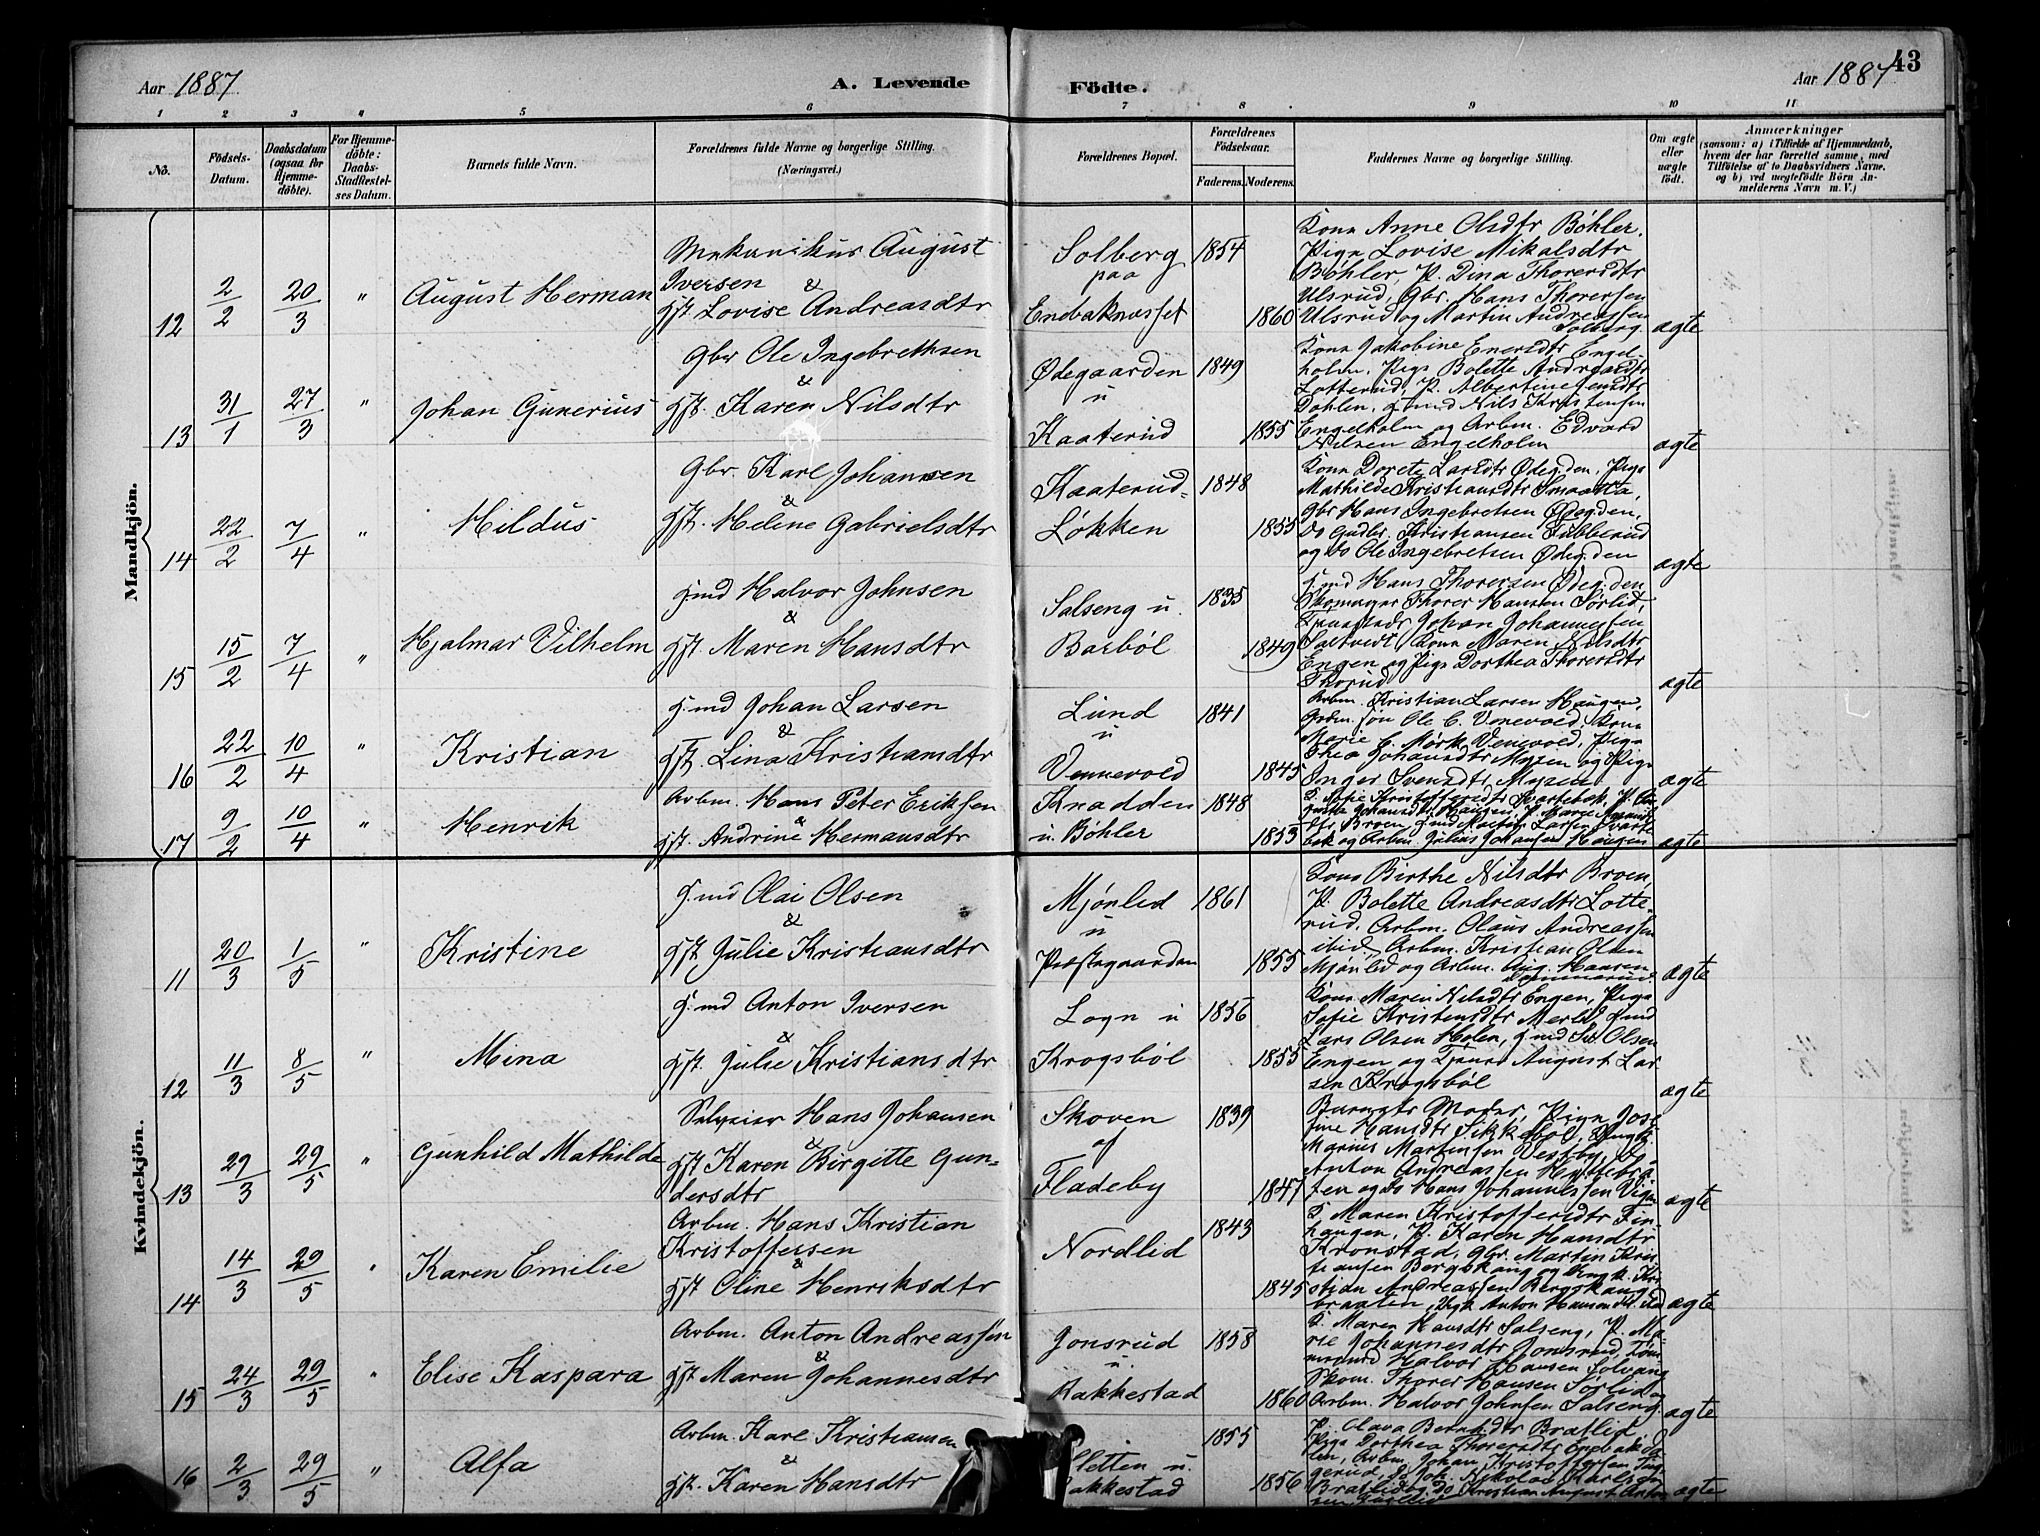 43
Aar 1887
A. Levende
Födte.
Aar 1887
1 2 3 4 5 6 7 8 9 10 11
No.
Födsels-
Datum.
Daabsdatum
(ogsaa for
Hjemme-
döbte).
For Hjemme-
döbte:
Daabs-
Stadfæstel-
ses Datum.
Barnets fulde Navn.
Forældrenes fulde Navne og borgerlige Stilling.
(Næringsvei.)
Forældrenes Bopæl.
Forældrenes
Födselsaar.
Faderens.
Moderens.
Faddernes Navne og borgerlige Stilling.
Om ægte
eller
uægte
födt.
Anmærkninger
(saasom: a) i Tilfælde af Hjemmedaab,
hvem der har forrettet samme, med
Tilföielse af to Daabsvidners Navne,
og b) ved uægtefödte Börn An-
melderens Navn m. V.)
Mandkjön.
12
2/2
20/3
"
August Herman
Mekanikus August
Iversen
&
gft. Lovise Andreasdtr
Solberg
paa
Enebaknesset
1854
1860
Kona Anne Olsdtr Bøhler,
Piga Lovise Mikalsdtr
Bøhler, P. Dina Thorersdtr
Ulsrud, Gbr. Hans Thorersen
Ulsrud og Martin Andreassen
Solberg
ægte
13
31/1
27/3
"
Johan Gunerius
Gbr Ole Ingebrethsen
&
gft. Karen Nilsdtr
Ødegaarden
u
Kaaterud
1849
1855
Kona Jakobine Enersdtr Engel-
holm, Piga Bolette Andreasdtr
Lotterud, P. Albertine Jensdtr
Dahlen, g.md Nils Kristensen
Engelholm og Arbm. Edvard
Nilsen Engelholm
ægte
14
22/2
7/4
"
Hildus
Gbr. Karl Johansen
&
gft. Helene Gabrielsdtr
Kaaterud-
Løkken
1848
1855
Kona Dorete Larsdtr Ødeg.den, Piga
Mathilde Kristiansdtr
Gbr Hans Ingebretsen Ødeg.den,
Do Gudbr. Kristiansen Tubberud
og Do Ole Ingebretsen Ødeg.den
ægte
15
15/2
7/4
"
Hjalmar Vilhelm
g.md Halvor Johnsen
&
gft. Maren Hansdtr
Salseng u.
Barbøl
1835
1849
g.md Hans Thorersen Ødeg.den
Skomager Thorer Hansen Sørlid,
Johan Johannesen
Saltvedt, Kona Maren Nilsdtr
Engen og Piga Dorthea Thorersdtr
Thorud
ægte
16
22/2
10/4
"
Kristian
g.md Johan Larsen
&
gft. Lina Kristiansdtr
Lund
u
Vennevold
1841
1845
Arbm. Kristian Larsen Haugen,
Ole C. Venevold, Kona
Marie C. Mørk Venevold, Piga
Thea Johansdtr Mysen og Piga
Inger Svensdtr Mysen
ægte
17
9/2
10/4
"
Henrik
Arbm. Hans Peter Eriksen
&
gft. Andrine Hermansdtr
Knadden
u. Bøhler
1848
1853
K. Sofie Kristoffersdtr Svartebek,
bek og Arbm. Julius Johansen Haugen
ægte
Kvindekjön.
11
20/3
1/5
"
Kristine
g.md Olai Olsen
&
gft Julie Kristiansdtr
Mjønlid
u
Præstegaarden
1861
1855
Kona Birthe Nilsdtr Broen,
P. Bolette Andreasdtr Lotte-
rud, Arbm. Olaus Andreassen
ibid, Arbm. Kristian Olsen
Mjønlid og Arbm. Aug. Hansen
ægte
12
11/3
8/5
"
Mina
g.md Anton Iversen
&
gft. Julie Kristiansdtr
Logn u
Krogsbøl
1856
1855
Kona Maren Nilsdtr Engen, Piga
Sofie Kristensdtr Merlid, g.md
Lars Olsen Holen, g.md Olsen
Engen og August Lar-
sen Krogsbøl
ægte
13
29/3
29/5
"
Gunhild Mathilde
Hans Johansen
&
gft Karen Birgitte Gun-
dersdtr
Skoven
af
Fladeby
1839
1847
Barnets Moder, Piga Jose-
fine Hansdtr Sikkebøl, Ungk.
Marius Martinsen Vestby, Do
Anton Andreassen Hyttebrå-
ten og Do Hans Johannessen
ægte
14
14/3
29/5
"
Karen Emilie
Arbm. Hans Kristian
Kristoffersen
&
gft Oline Henriksdtr
Nordlid
1843
1845
K. Maren Kristoffersdtr Fin-
haugen, P. Karen Hansdtr
Kronstad, Gbr. Martin Kris-
tiansen Bergskaug og Ungk. Kri-
stian Andreassen Bergskaug-
braaten, Ungk Anton Hansen
ægte
15
24/3
29/5
"
Elise Kaspara
Arbm. Anton Andreassen
&
gft Maren Johannesdtr
Jonsrud
u.
Rakkestad
1858
1860
K. Maren Hansdtr Salseng, P. Ma-
rie Johannesdtr Jonsrud, Tøm-
mermd Halvor Hansen Solvang
Skom. Thorer Hansen Sørlid og
Arbm. Halvor Johnsen Salseng.
ægte
16
2/3
29/5
"
Alfa
Arbm. Karl Kristiansen
&
gft. Karen Hansdtr
Sletten u.
Rakkestad
1855
1856
K. Olava Berntsdtr Bratlid
Piga Dorthea Thorersdtr
Arbm. Johan Kristoffersen
Nikolai Karlsen
Bratlid og Do Kristian August Anton
ægte